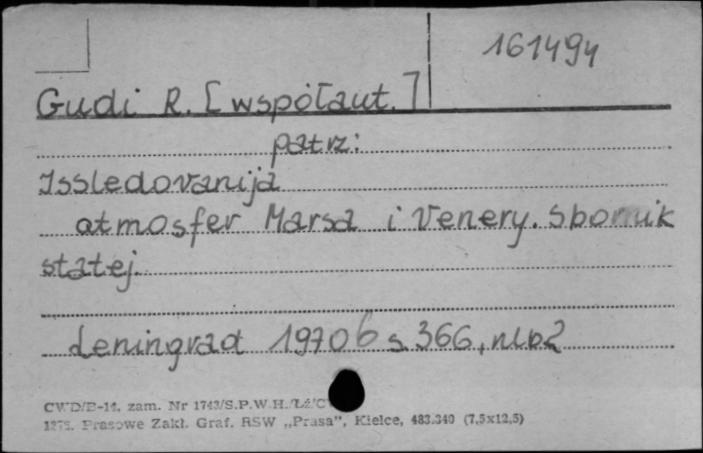 161494
Gudi R. [współaut.]
patrz:
Issledovanija
atmosfer Marsa i Venery. Sbornik
statej.
Leningrad 1970 s 366, nlb2
CWD/B-14. zam. Nr 1743/S.P.W.H.
Prasowe Zakł. Graf. RSW „Prasa”, Kielce, 483.340 (7,5x12,5)